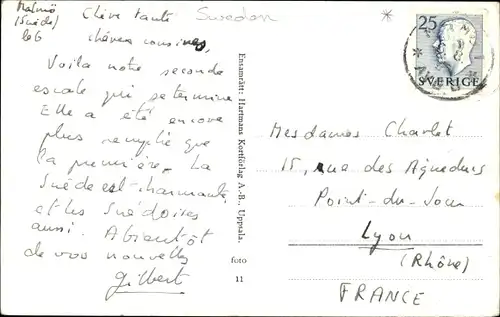 Malmö
(Suède)
le 6
Chère tante Sweden
chères cousines,
Voila notre seconde
escale qui se termine
Elle a été encore
plus remplie que
la première. La
Suède est charmante
et les Suédoises
aussi. A bientôt
de vos nouvelles
Gilbert
Ensamrätt: Hartmans Kortförlag A.-B., Uppsala.
foto
11
25
SVERIGE
Mesdames Charlet
15, rue des Aqueducs
Point-du-Jour
Lyon
(Rhône)
FRANCE